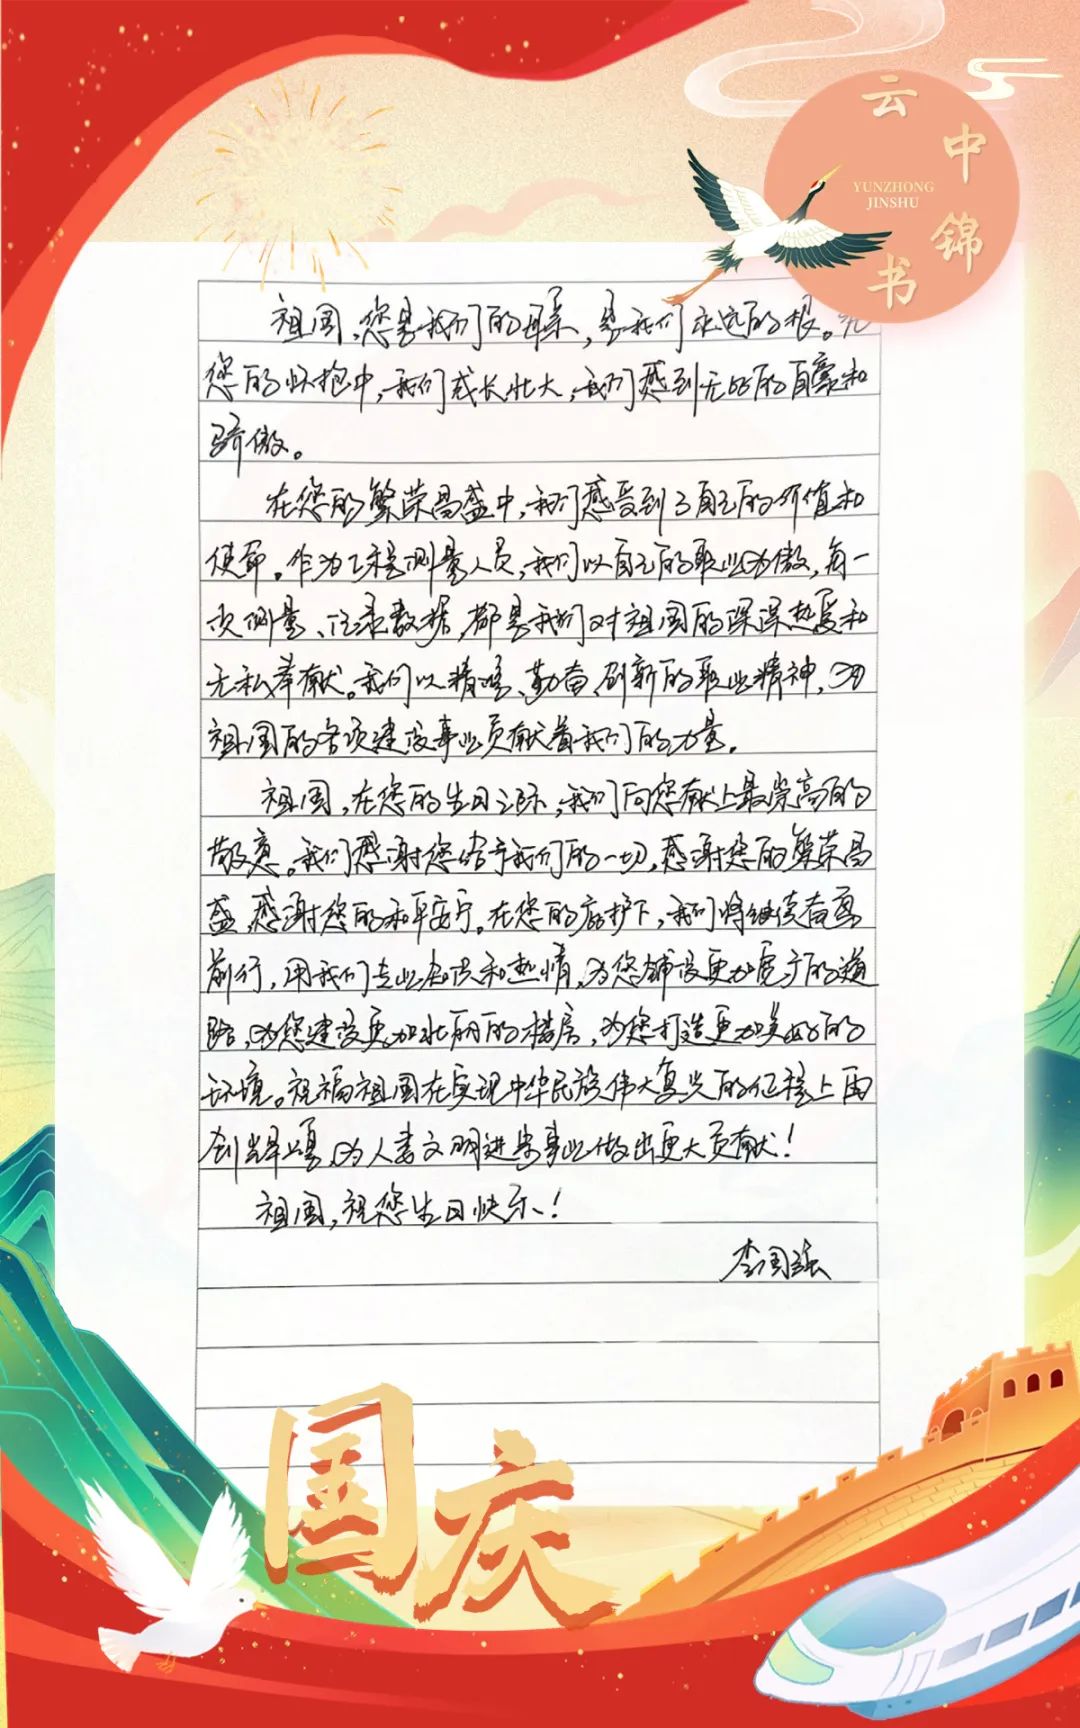 云中锦书
YUNZHONG
JINSHU
祖国，您是我们的母亲，是我们永远的根。在
您的怀抱中，我们成长壮大，我们感到无比的自豪和
骄傲。
在您的繁荣昌盛中，我们感受到了自己的价值和
使命。作为工程测量人员，我们以自己的职业为傲，每一
次测量、记录数据，都是我们对祖国的深深热爱和
无私奉献。我们以精准、勤奋、创新的职业精神，为
祖国的各项建设事业贡献着我们的力量。
祖国，在您的生日之际，我们向您献上最崇高的
敬意。我们感谢您给予我们的一切，感谢您的繁荣昌
盛，感谢您的和平安宁。在您的庇护下，我们将继续奋勇
前行，用我们专业知识和热情，为您铺设更加宽广的道
路，为您建设更加壮丽的楼房，为您打造更加美好的
环境。祝福祖国在实现中华民族伟大复兴的征程上再
创辉煌，为人类文明进步事业做出更大贡献！
祖国，祝您生日快乐！
李国强
国庆